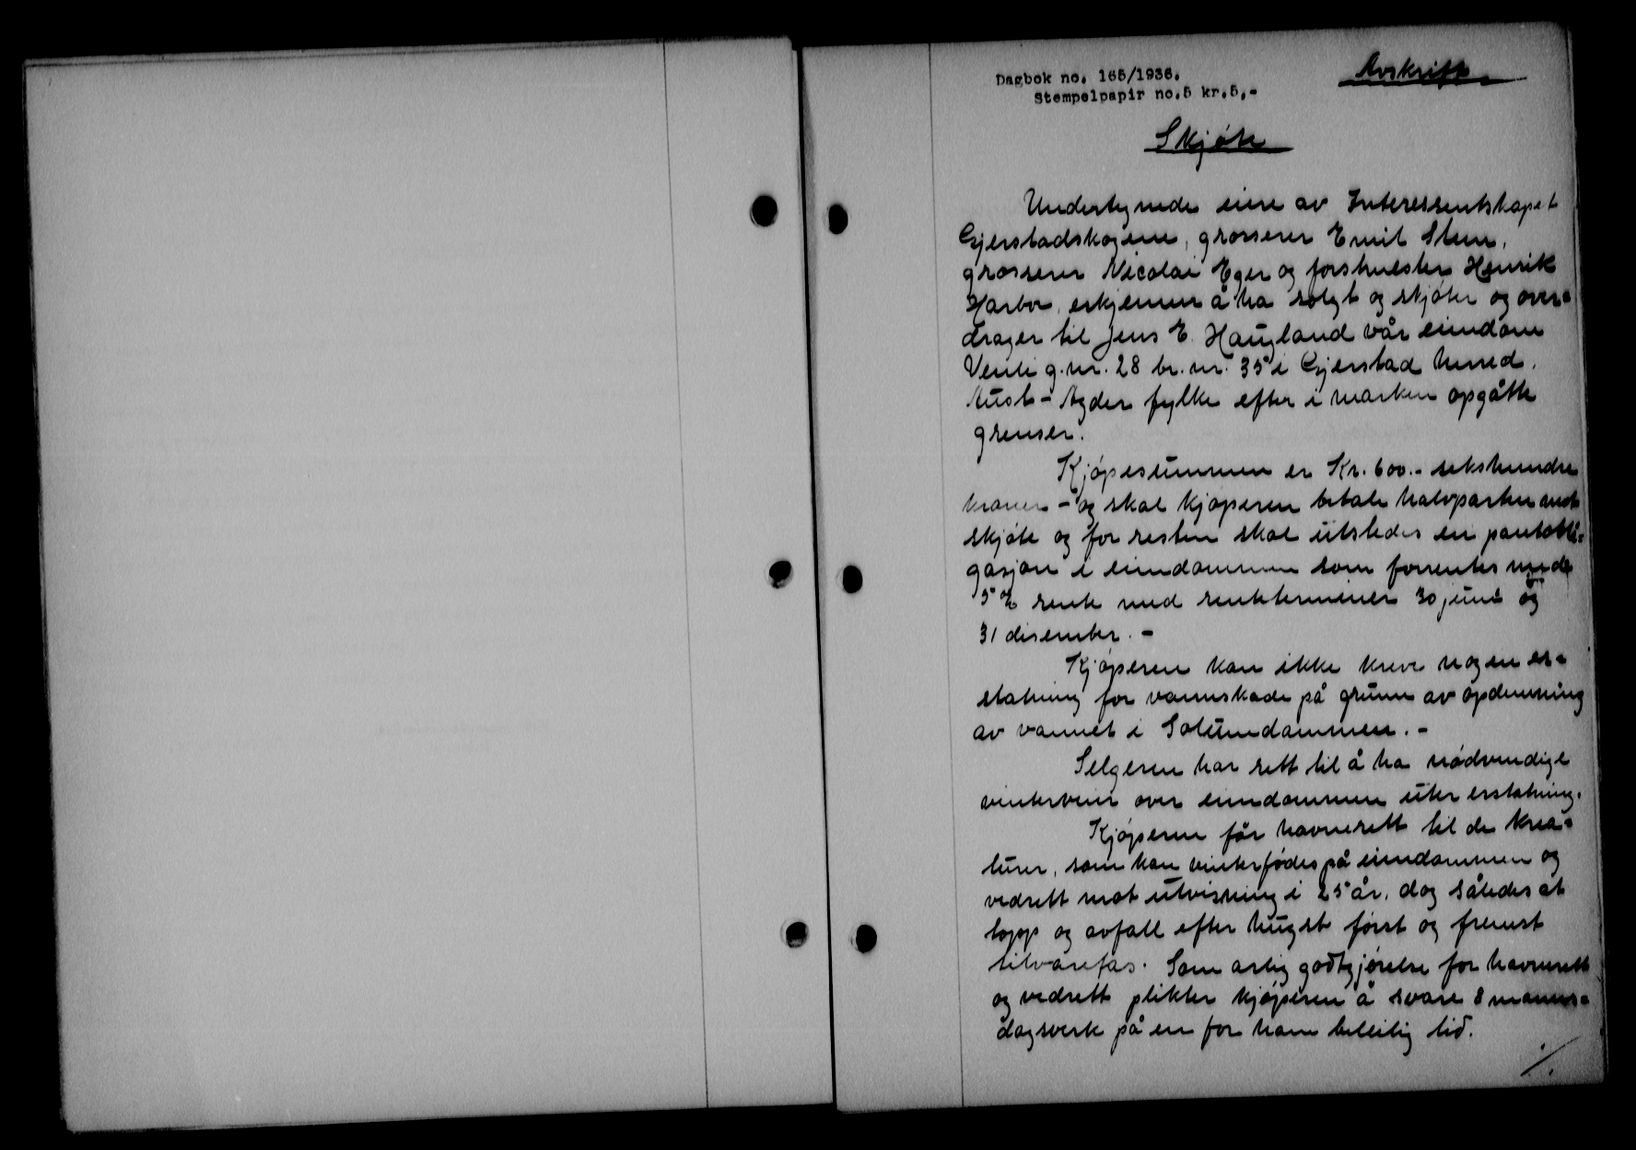 Dagbok no. 165/1936.
Stempelpapir no.5 kr.5,-
Avskrift
Skjøte
Undertegnede eiere av Interessentskapet
Gjerstadskogene, grosserer Emil Steen,
grosserer Nicolai Eger og forstmester Henrik
Harbo, erkjenner å ha solgt og skjøter og over-
drager til Jens E. Haugland vår eiendom
g.nr. 28 br.nr. 35 i Gjerstad herred.
Aust-Agder fylke efter i marken opgåtte
grenser.
Kjøpesummen er Kr. 600.- sekshundre
kroner - og skal kjøperen betale halvparten mot
skjøte og for resten skal utstedes en pantobli-
gasjon i eiendommen som forrentes med
5% rente med renteterminer 30 juni og
31 desember. -
Kjøperen kan ikke kreve nogen er-
statning for vannskade på grunn av opdemning
av vannet i Solumdammen. -
Selgeren har rett til å ha nødvendige
vinterveier over eiendommen uten erstatning.
Kjøperen får havnerett til de krea-
turer, som kan vinterfødes på eiendommen og
vedrett mot utvisning i 25 år, dog således at
topp og avfall efter hugst først og fremst
tilvaretas. Som årlig godtgjørelse for havnerett
og vedrett plikter kjøperen å svare 8 manns-
dagsverk på en for ham beleilig tid.
./.